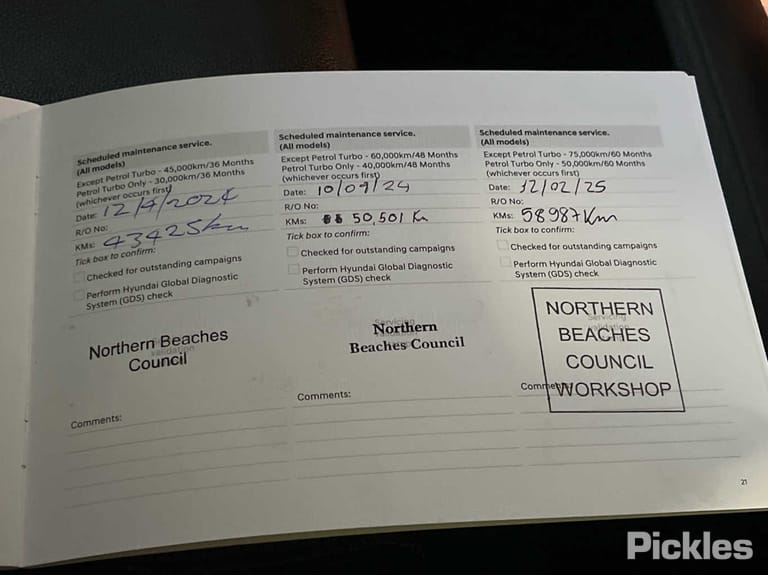 Scheduled maintenance service.
(All models)
Except Petrol Turbo - 45,000km/36 Months
Petrol Turbo Only - 30,000km/36 Months
(whichever occurs first)
Date: 12/4/2024
R/O No:
KMs: 43425km
Tick box to confirm:
Checked for outstanding campaigns
Perform Hyundai Global Diagnostic
System (GDS) check
Northern Beaches
Council
validation
Comments:
Scheduled maintenance service.
(All models)
Except Petrol Turbo - 60,000km/48 Months
Petrol Turbo Only - 40,000km/48 Months
(whichever occurs first)
Date: 10/09/24
R/O No:
KMs: 50,501 Km
Tick box to confirm:
Checked for outstanding campaigns
Perform Hyundai Global Diagnostic
System (GDS) check
Servicing
Northern
Beaches Council
Comments:
Scheduled maintenance service.
(All models)
Except Petrol Turbo - 75,000km/60 Months
Petrol Turbo Only - 50,000km/60 Months
(whichever occurs first)
Date: 12/02/25
R/O No:
KMs: 58987Km
Tick box to confirm:
Checked for outstanding campaigns
Perform Hyundai Global Diagnostic
System (GDS) check
NORTHERN
Servicing
BEACHES
validation
COUNCIL
WORKSHOP
Comments:
21
Pickles